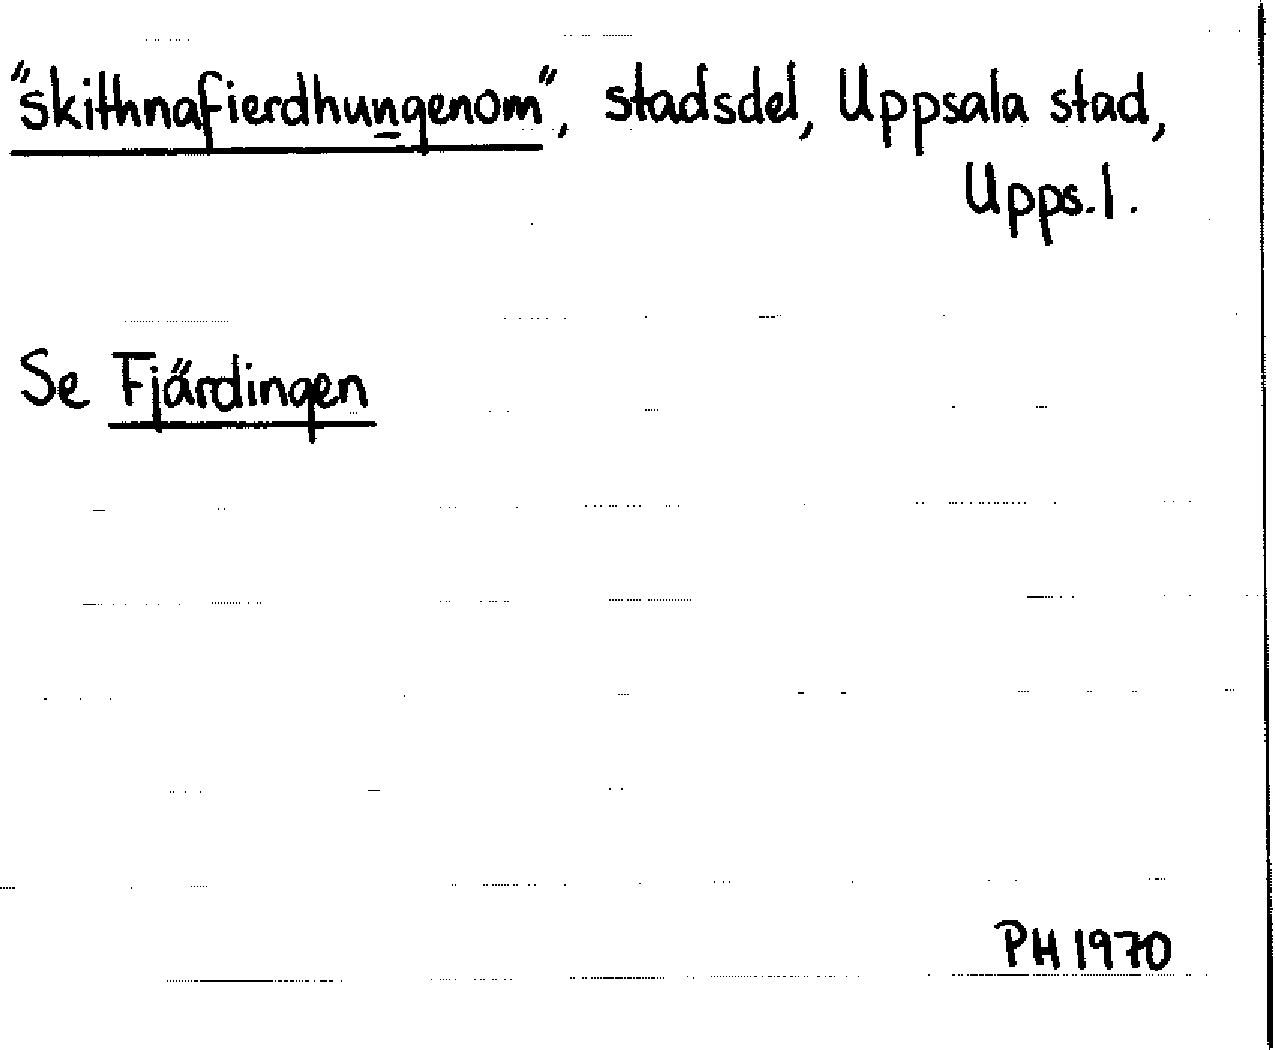 "skithnafierdhungenom", stadsdel, Uppsala stad,
Upps.l.
Se Fjärdingen
PH 1970